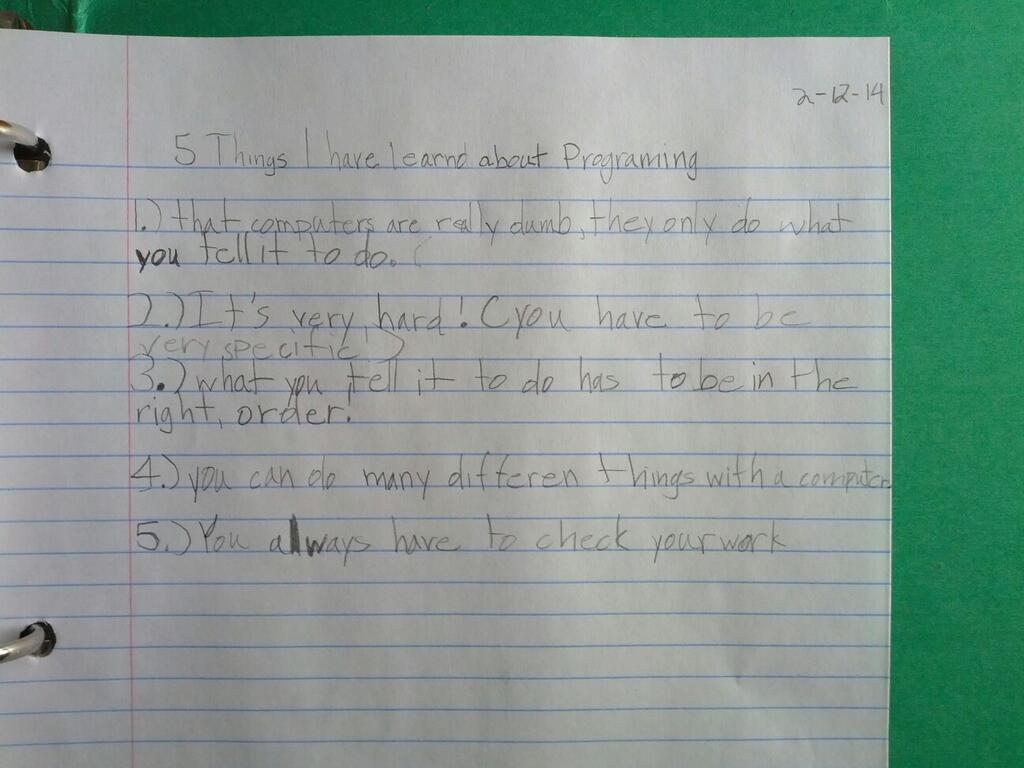 2-12-14
5 Things I have learnd about Programing
1.) that computers are really dumb, they only do what
you tell it to do. (
2.) It's very hard! (you have to be
very specific)
3.) what you tell it to do has to be in the
right, order!
4.) you can do many differen things with a computer
5.) You always have to check your work